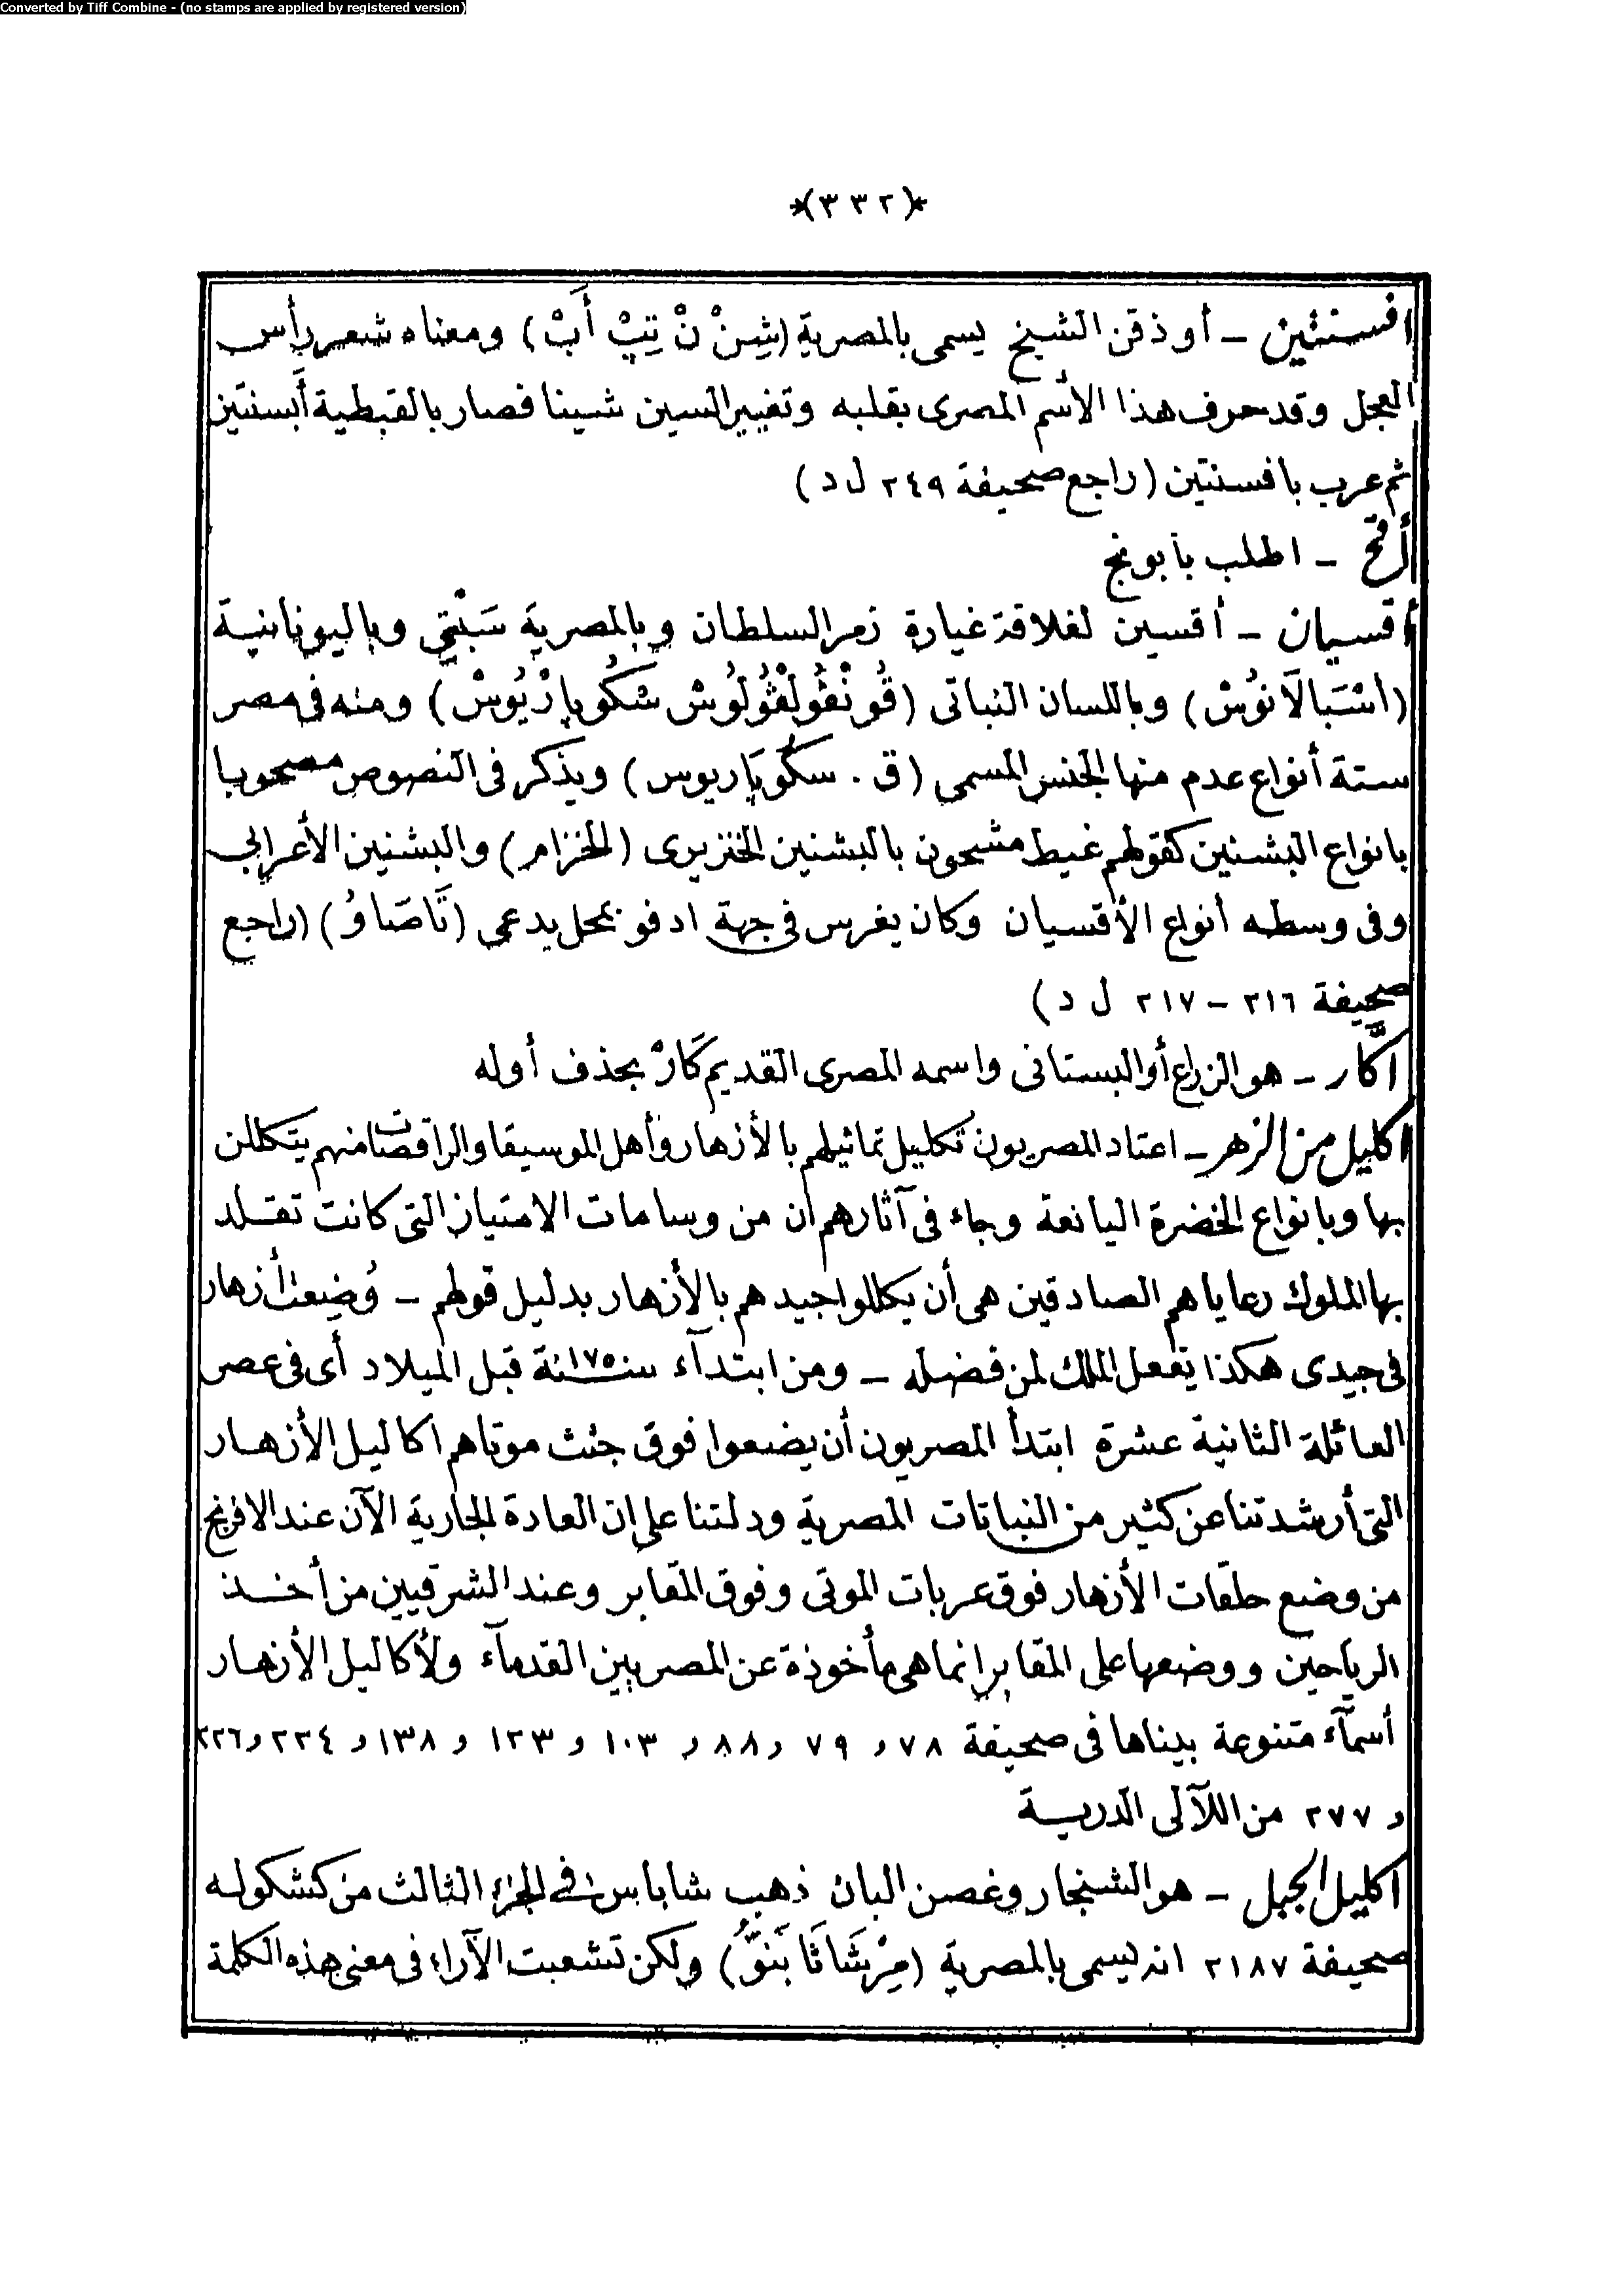 Converted by Tiff Combine - (no stamps are applied by registered version)
*(٣٣٢)*
افسنتين - أو ذقن الشيخ يسمى بالمصرية (شِنْ نْ تِبْ أَبْ) ومعناه شعر رأس
العجل وقد حرف هذا الاسم المصرى بقلبه وتغيير السين شينا فصار بالقبطية أَبسنتين
ثم عرب بافسنتين (راجع صحيفة ٢٤٩ ل د)
أقح - اطلب بابونج
أقسيان - أقسين لغلاقة غيارة زمر السلطان وبالمصرية سَبْتِى وباليونانية
(أَسْبَالاَنوُسْ) وباللسان النباتى (قُونْڤُولْڤُولُوسْ سْكُوپارْيُوسْ) ومنه فى مصر
ستة أنواع عدم منها الجنس المسمى (ق . سكُوپَاريوس) ويذكر فى النصوص مصحوبا
بانواع البشنين كقولهم غيط مشحون بالبشنين الخنزيرى (الخزام) والبشنين الأعرابى
وفى وسطه أنواع الأقسيان وكان يغرس فى جهة ادفو بمحل يدعى (تَاصَاوُ) (راجع
صحيفة ٢١٦ - ٢١٧ ل د)
اكَّار - هو الزراع أو البستانى واسمه المصرى القديم كَارْ بحذف أوله
اكليل من الزهر - اعتاد المصريون تكليل تماثيلهم بالأزهار وأهل الموسيقا والراقصات منهم يتكللن
بها وبانواع الخضرة اليانعة وجاء فى آثارهم ان من وسامات الامتياز التى كانت تقلد
بها الملوك رعاياهم الصادقين هى أن يكللوا جيدهم بالأزهار بدليل قولهم - وُضِعَت أزهار
فى جيدى هكذا يفعل الملك لمن فضله - ومن ابتدآء سنة ١٧٥٠ قبل الميلاد أى فى عصر
العائلة الثانية عشرة ابتدأ المصريون أن يضعوا فوق جثث موتاهم اكاليل الأزهار
التى أرشدتنا عن كثير من النباتات المصرية ودلتنا على ان العادة الجارية الآن عند الافرنج
من وضع حلقات الأزهار فوق عربات الموتى وفوق المقابر وعند الشرقيين من أخذ
الرياحين ووضعها على المقابر انما هى مأخوذة عن المصريين القدمآء ولأكاليل الأزهار
أسمآء متنوعة بيناها فى صحيفة ٧٨ و ٧٩ و ٨٨ و ١٠٣ و ١٢٣ و ١٣٨ و ٢٢٤ و ٢٢٦
و ٢٧٧ من اللآلى الدرية
اكليل الجبل - هو الشنجار وغصن البان ذهب شاباس فى الجزء الثالث من كشكوله
صحيفة ٢١٨٧ انه يسمى بالمصرية ولكن تشعبت الآراء فى معنى هذه الكلمة